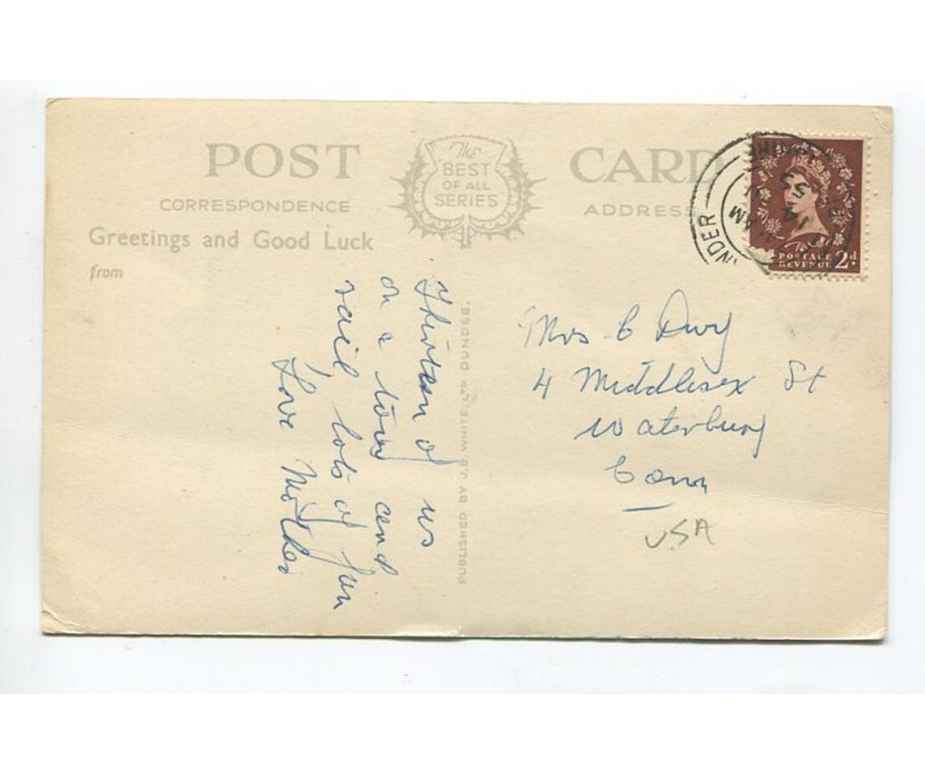 POST CARD
The
BEST
OF ALL
SERIES
CORRESPONDENCE
ADDRESS
Greetings and Good Luck
from
Thirteen of us
on a tour and
sail lots of fun
Love Mother
PUBLISHED BY J.B. WHITE, LTD. DUNDEE.
Mrs C
4 Middlesex St
Waterbury
Conn
USA
POSTAGE
REVENUE
2d
AM